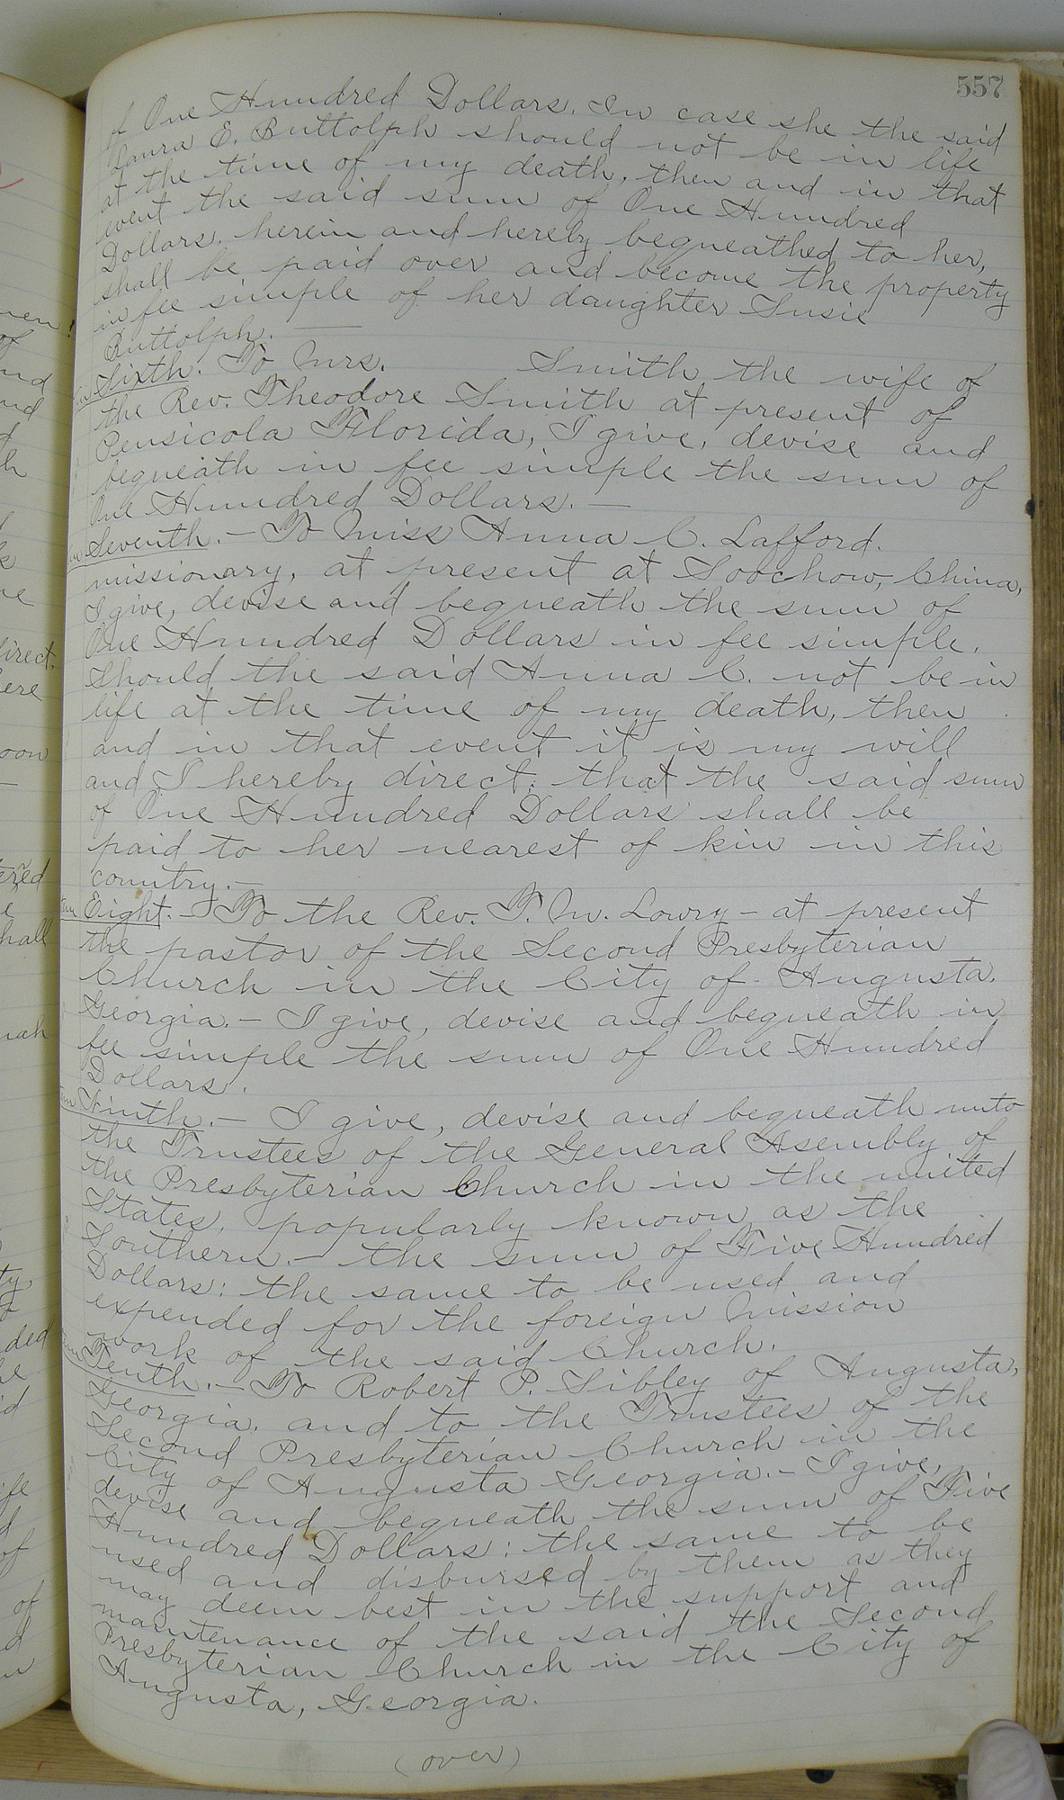 557
of One Hundred Dollars. In case she the said
Laura E. Buttolph should not be in life
at the time of my death, then and in that
event the said sum of One Hundred
Dollars. herein and hereby bequeathed to her,
shall be paid over and become the property
in fee simple of her daughter Susie
Buttolph. —
Sixth. To Mrs. Smith the wife of
the Rev. Theodore Smith at present of
Pensicola Florida, I give, devise and
bequeath in fee simple the sum of
One Hundred Dollars. —
Seventh. — To Miss Anna C. Safford.
missionary, at present at Soochow, China,
I give, devise and bequeath the sum of
One Hundred Dollars in fee simple.
Should the said Anna C. not be in
life at the time of my death, then
and in that event it is my will
and I hereby direct: that the said sum
of One Hundred Dollars shall be
paid to her nearest of kin in this
country. —
Eight. — To the Rev. T. M. Lowry — at present
the pastor of the Second Presbyterian
Church in the City of Augusta.
Georgia. — I give, devise and bequeath in
fee simple the sum of One Hundred
Dollars.
Ninth. — I give, devise and bequeath unto
the Trustees of the General Asembly of
the Presbyterian Church in the united
States, popularly known as the
Southern. — the sum of Five Hundred
Dollars: the same to be used and
expended for the foreign Mission
work of the said Church.
Tenth. — To Robert P. Sibley of Augusta,
Georgia. and to the Trustees of the
Second Presbyterian Church in the
City of Augusta Georgia. — I give,
devise and bequeath the sum of Five
Hundred Dollars: the same to be
used and disbursed by them as they
may deem best in the support and
maintenance of the said the Second
Presbyterian Church in the City of
Augusta, Georgia.
(over)